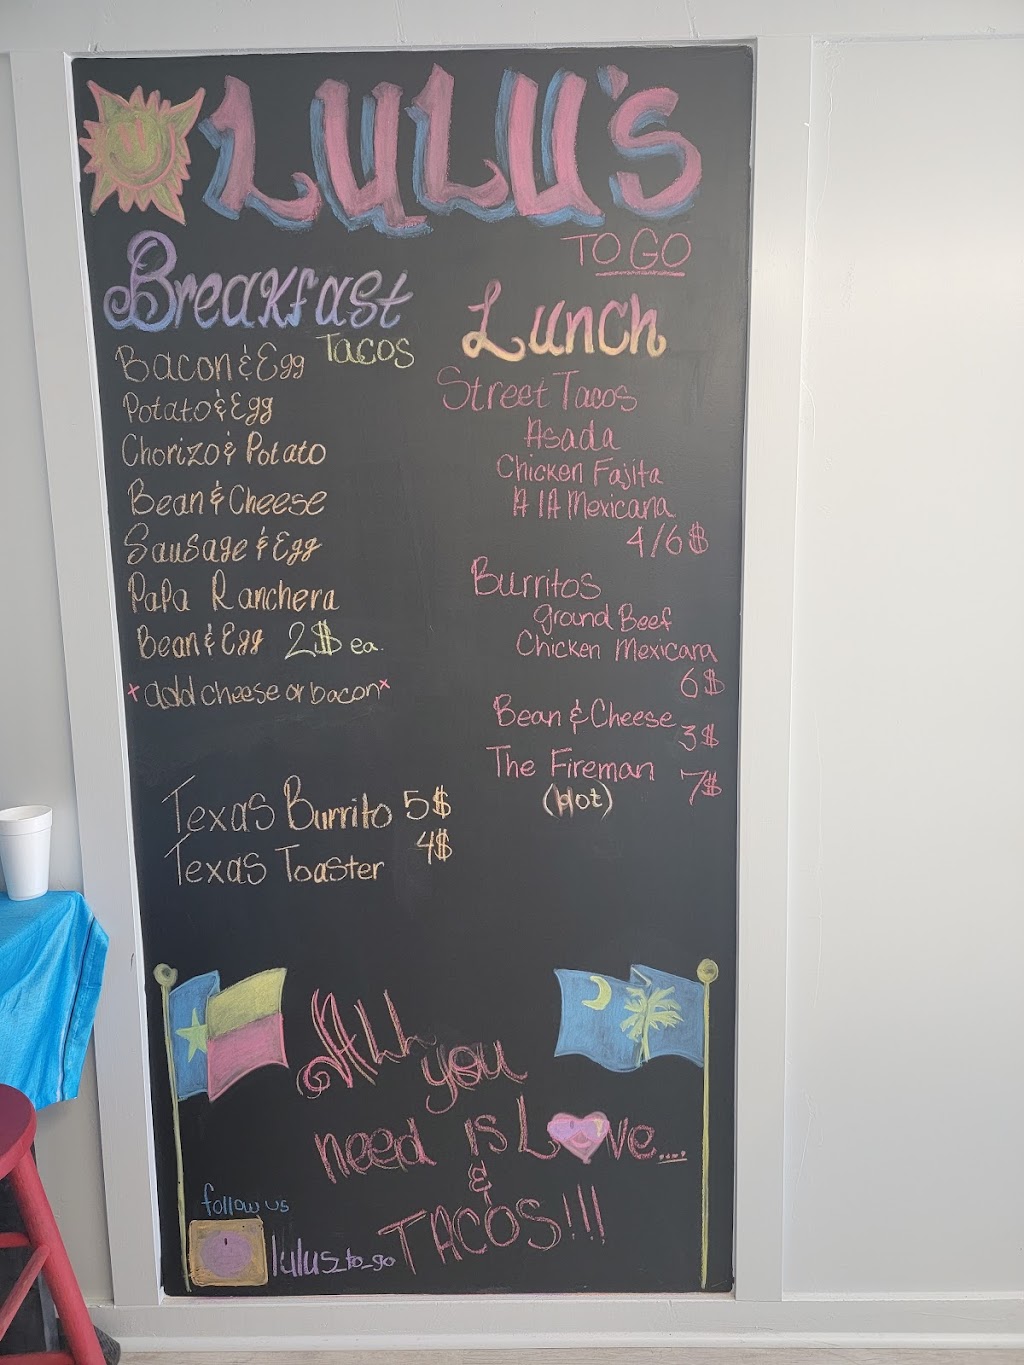 LULU's
TO GO
Breakfast
Tacos
Bacon & Egg
Potato & Egg
Chorizo & Potato
Bean & Cheese
Sausage & Egg
Papa Ranchera
Bean & Egg 2$ ea.
*add cheese or bacon*
Texas Burrito 5$
Texas Toaster 4$
Lunch
Street Tacos
Asada
Chicken Fajita
A lA Mexicana
4/6$
Burritos
Ground Beef
Chicken Mexicana
6$
Bean & Cheese 3$
The Fireman 7$
(Hot)
ALL
you
need is Love....
&
TACOS!!!
follow us
lulus_to_go